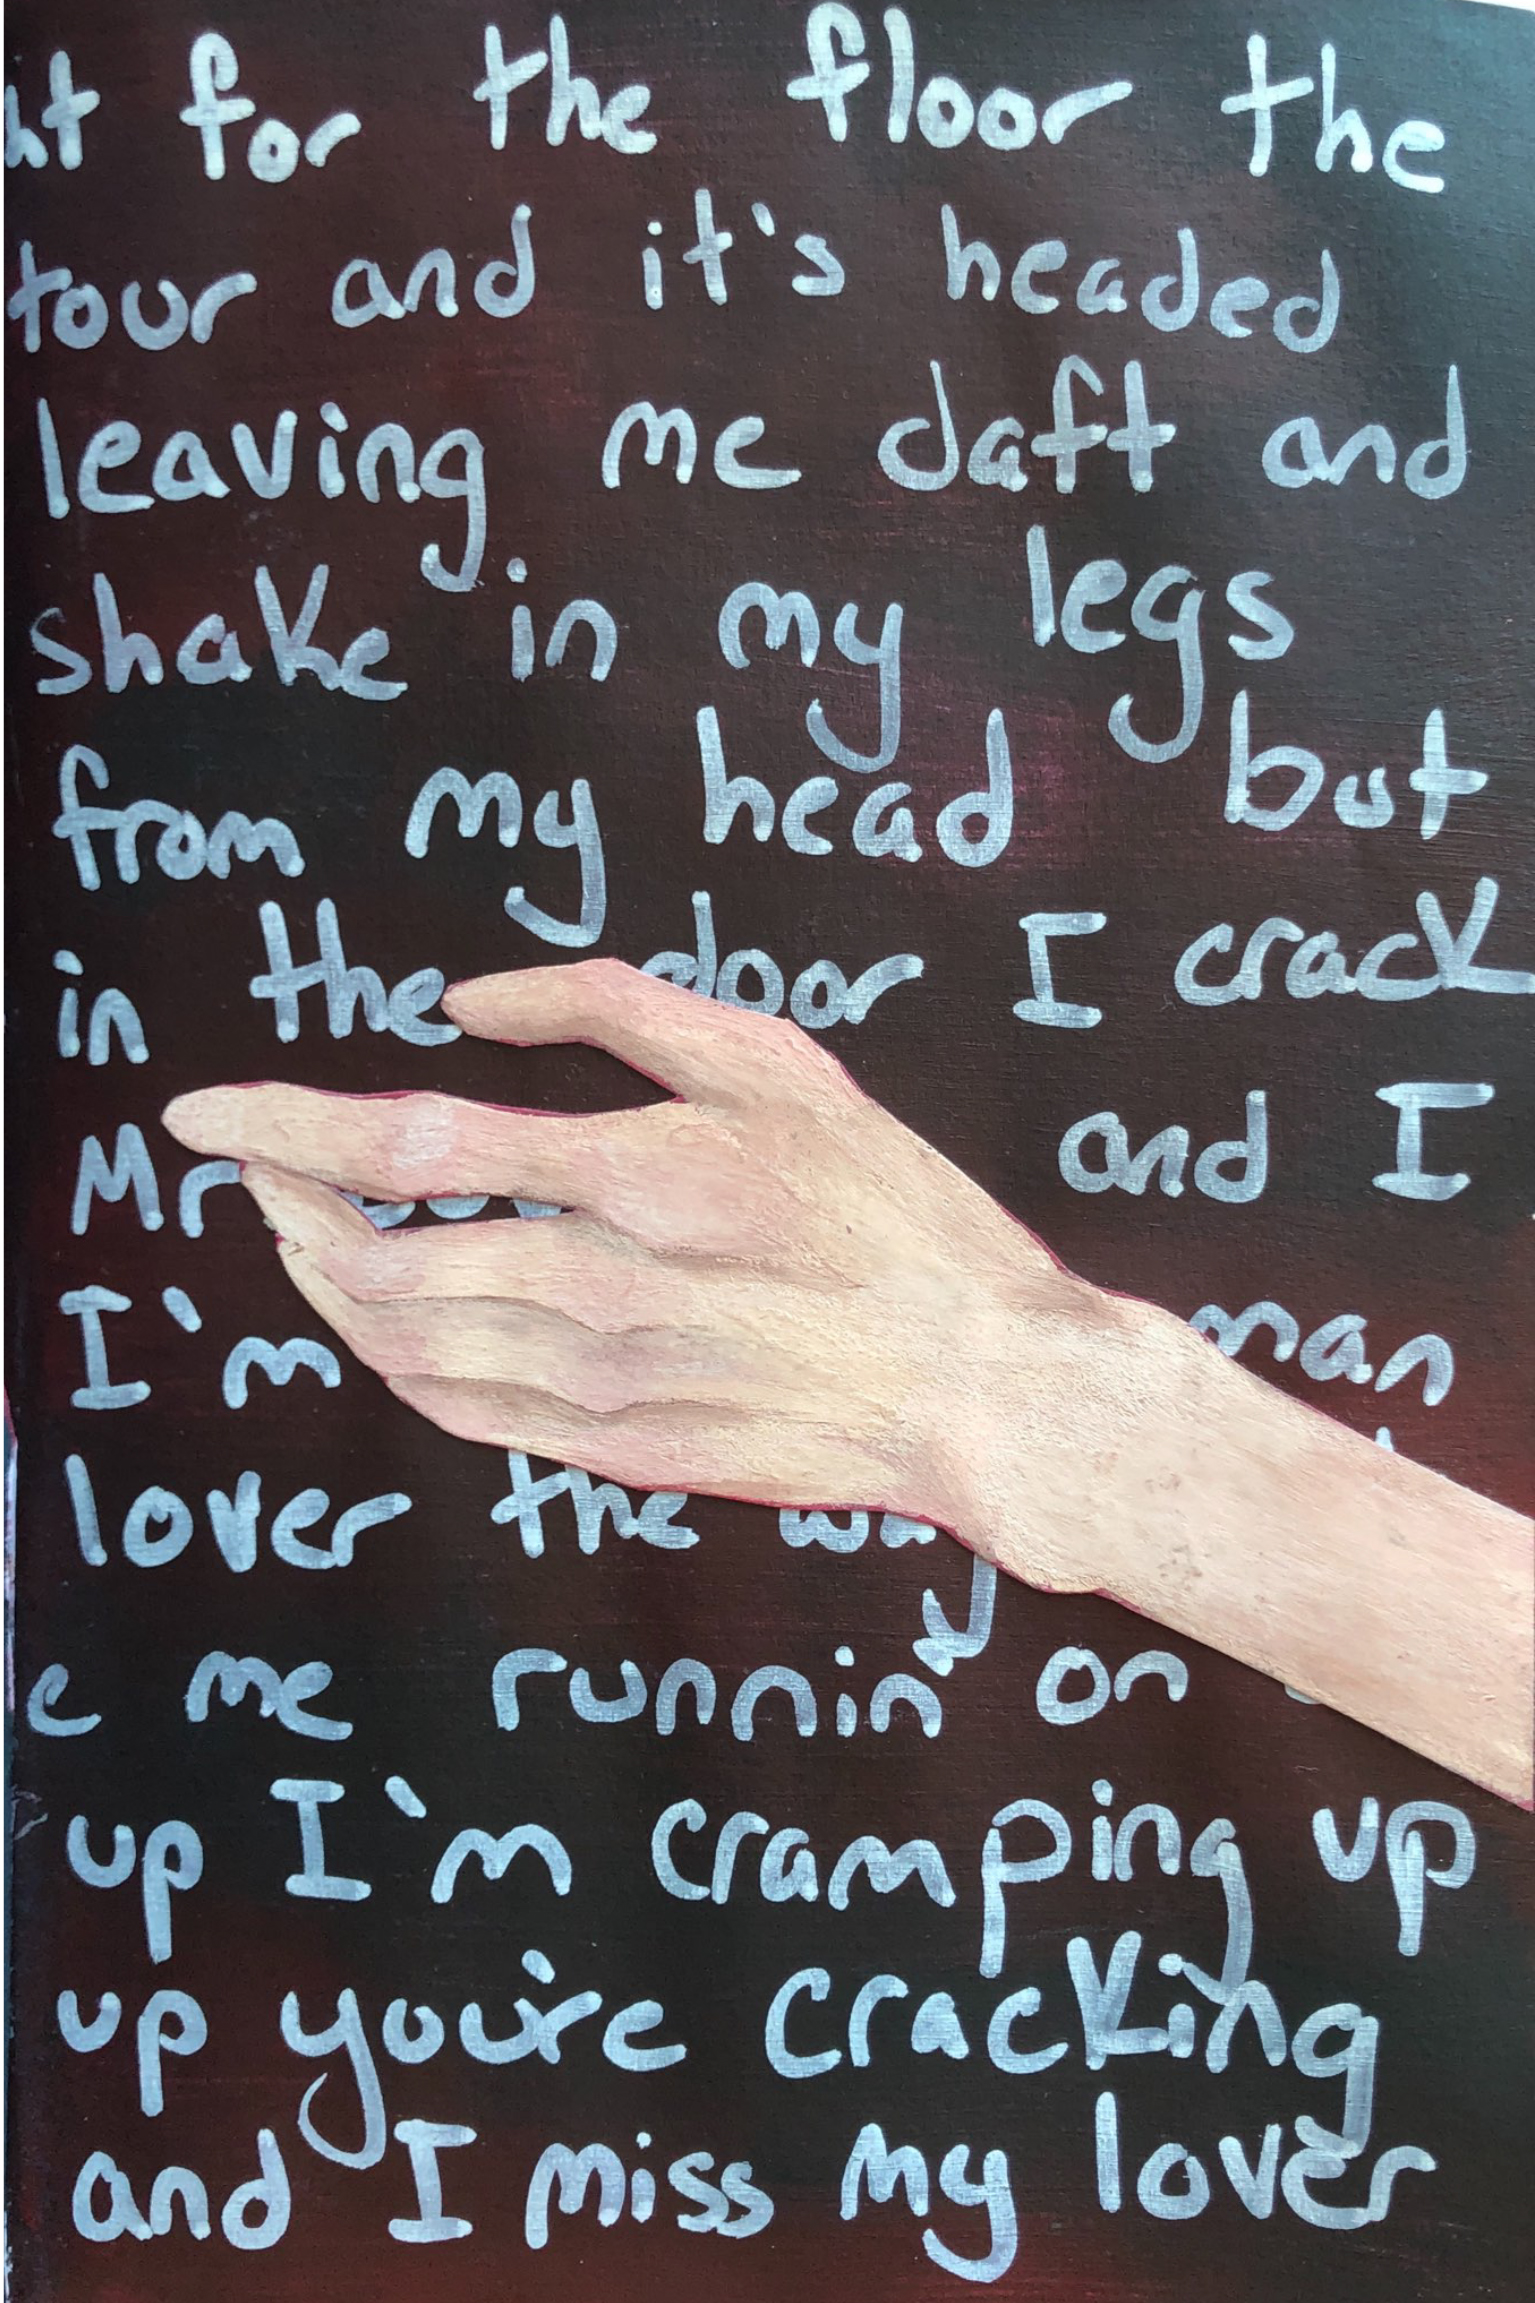 ht for the floor the
tour and it's headed
leaving me daft and
shake in my legs
from my head but
in the door I crack
Mr and I
I'm man
lover the way
e me runnin' on
up I'm cramping up
up you're cracking
and I miss my lover